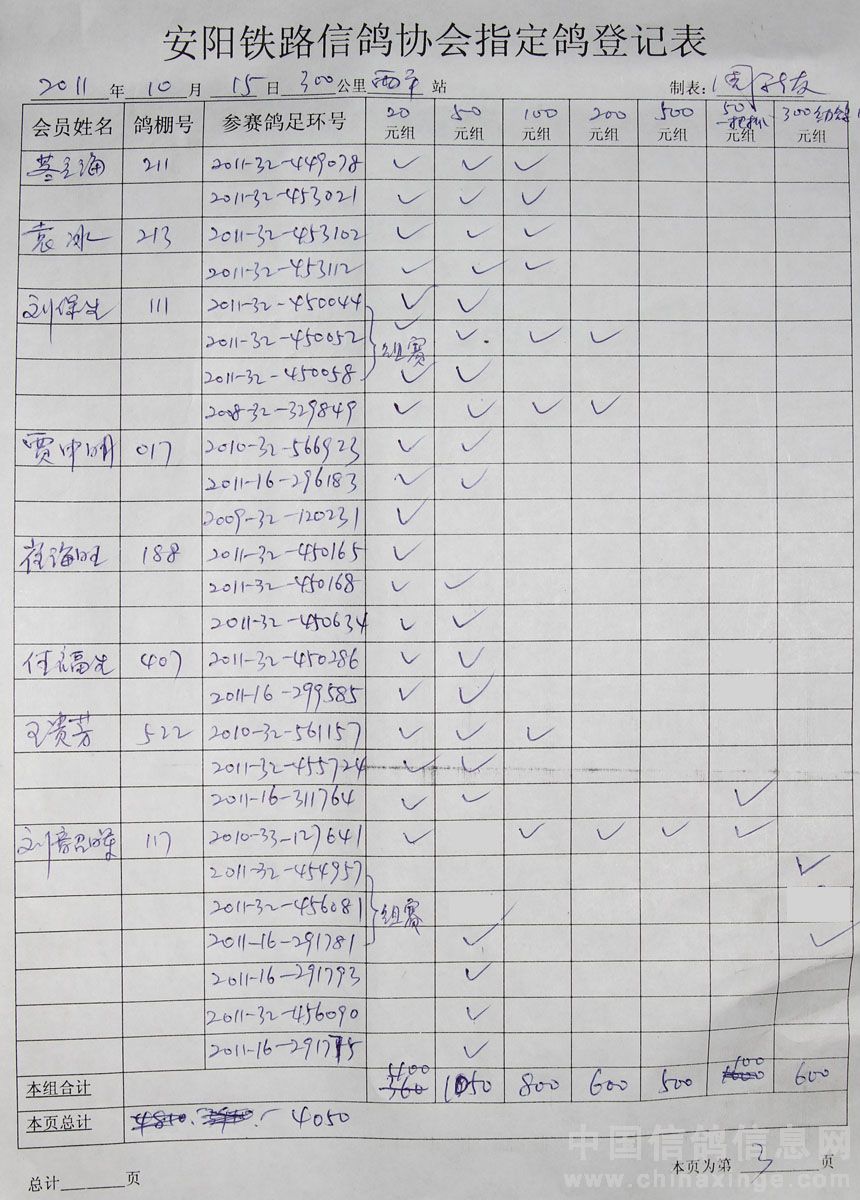 安阳铁路信鸽协会指定鸽登记表
2011 年 10 月 15 日 300 公里 西平 站 制表:
会员姓名 鸽棚号 参赛鸽足环号 20元组 50元组 100元组 200元组 500元组 50元组 300元组
211 2011-32-449078 ✓ ✓ ✓
2011-32-453021 ✓ ✓ ✓
袁冰 213 2011-32-453102 ✓ ✓ ✓
2011-32-453112 ✓ ✓ ✓
刘保生 111 2011-32-450044 ✓ ✓
2011-32-450052 组赛 ✓ ✓ ✓ ✓
2011-32-450058 ✓ ✓
2008-32-329849 ✓ ✓ ✓ ✓
贾中明 017 2010-32-566923 ✓ ✓
2011-16-296183 ✓ ✓
2009-32-120231 ✓
崔海旺 188 2011-32-450165 ✓
2011-32-450168 ✓ ✓
2011-32-450634 ✓ ✓
任福生 407 2011-32-450286 ✓ ✓
2011-16-299585 ✓ ✓
王贵芳 522 2010-32-561157 ✓ ✓ ✓
2011-32-455724 ✓ ✓
2011-16-311764 ✓ ✓ ✓
117 2010-33-127641 ✓ ✓ ✓ ✓ ✓
2011-32-454957 ✓
2011-32-456081 组赛
2011-16-291781 ✓ ✓
2011-16-291793 ✓
2011-32-456090 ✓
2011-16-291775 ✓
本组合计 1050 800 600 500 100 600
本页总计 4050
总计 页 本页为第 3 页
中国信鸽信息网
www.chinaxinge.com